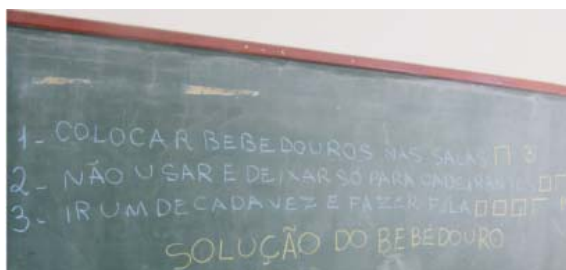 1- COLOCAR BEBEDOUROS NAS SALAS
2- NÃO USAR E DEIXAR SÓ PARA CADEIRANTES
3- IR UM DE CADA VEZ E FAZER FILA
SOLUÇÃO DO BEBEDOURO